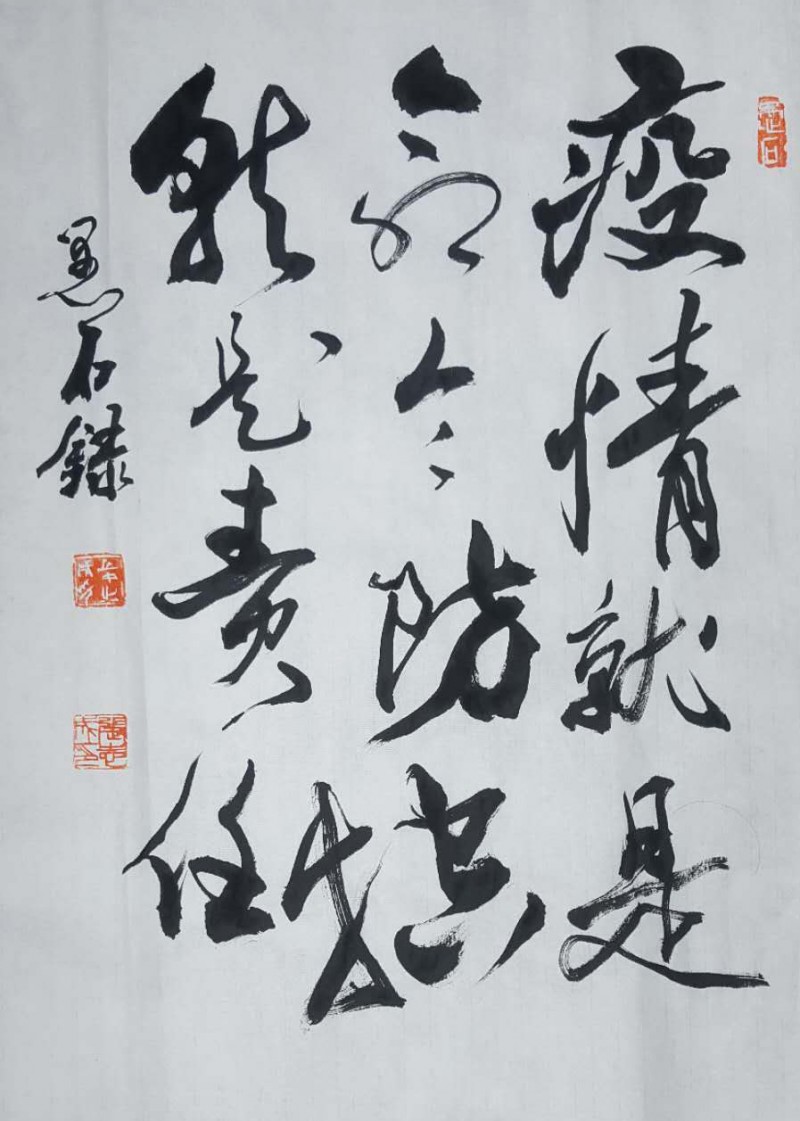 疫情就是
命令防控
就是责任
石録